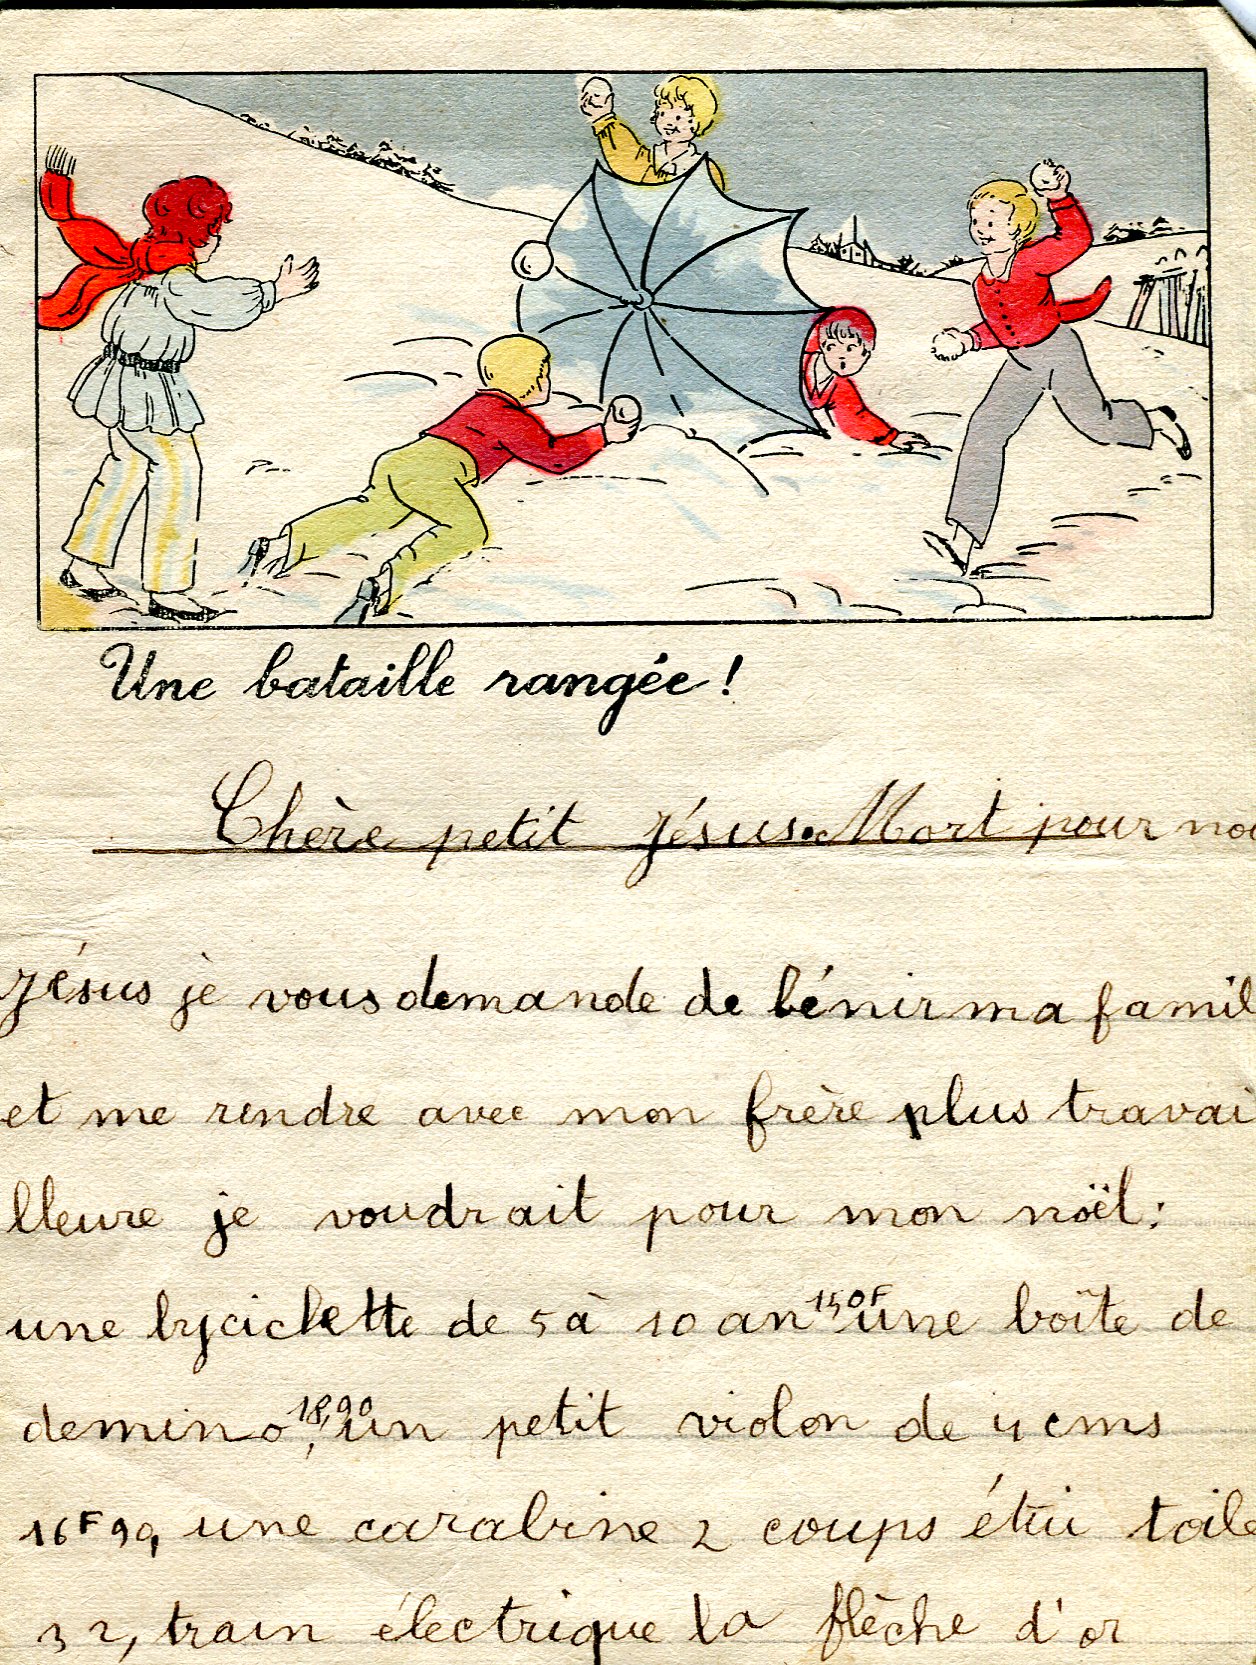 Une bataille rangée !
Chère petit Jésus. Mort pour nou
Jésus je vous demande de bénir ma famil
et me rendre avec mon frère plus travai
lleure je voudrait pour mon noël:
une byciclette de 5 à 10 an 150F une boîte de
demino 18,90, un petit violon de 4 cms
16F90, une carabine 2 coups étui toile
32, train électrique la flèche d'or